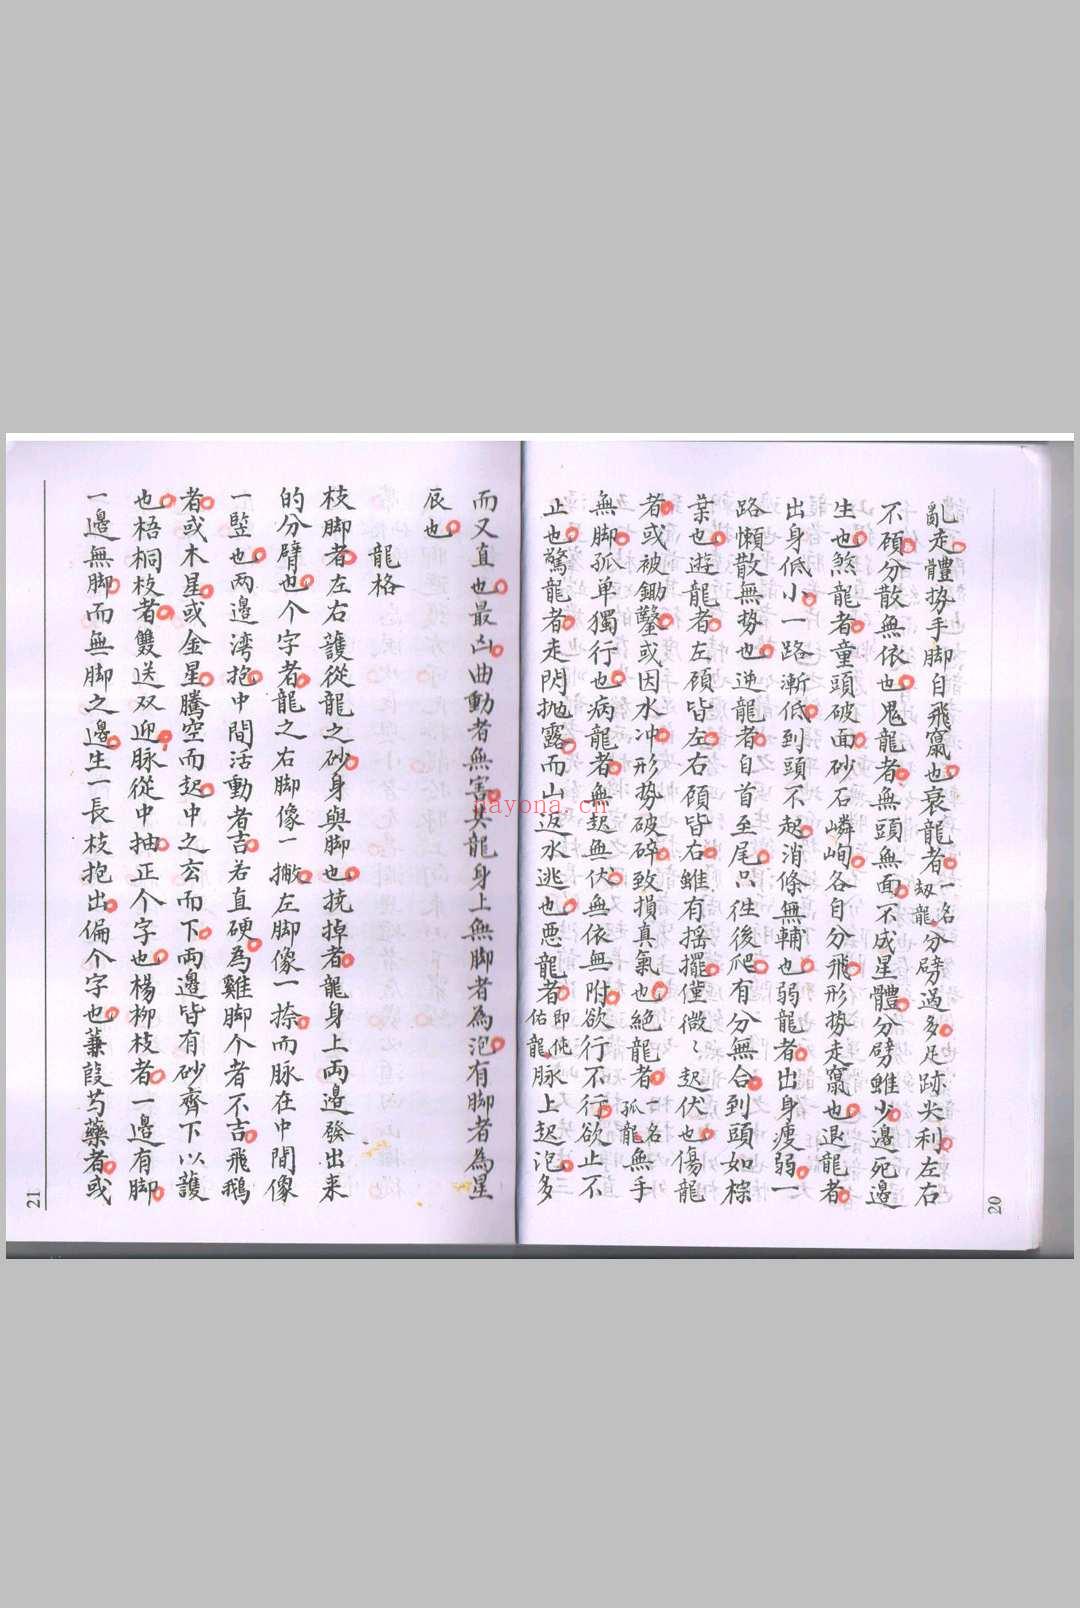 亂走體势手脚自飛竄也衰龍者一名刼龍分劈過多足跡尖利左右
不碩分散無依也鬼龍者無頭無面不成星體分劈雖少邊死邊
生也煞龍者童頭破面砂石嶙峋各自分飛形势走竄也退龍者
出身低小一路漸低到頭不起消條無輔也弱龍者出身瘦弱一
路懶散無势也逆龍者自首至尾只徃後爬有分無合到頭如棕
葉也遊龍者左碩皆左右碩皆右雖有摇擺僅微〻起伏也傷龍
者或被鋤鑿或因水冲形势破碎致損真氣也絶龍者一名孤龍無手
無脚孤单獨行也病龍者無起無伏無依無附欲行不行欲止不
止也驚龍者走閃抛露而山返水逃也惡龍者即侂佑龍脉上起泡多
20
而又直也最凶曲動者無害其龍身上無脚者為泡有脚者為星
辰也
龍格
枝脚者左右護從龍之砂身與脚也抚掉者龍身上両邊發出来
的分臂也个字者龍之右脚像一撇左脚像一捺而脉在中間像
一竪也两邊湾抱中間活動者吉若直硬為雞脚个者不吉飛鵝
者或木星或金星騰空而起中之玄而下両邊皆有砂齊下以護
也梧桐枝者雙送双迎脉從中抽正个字也楊柳枝者一邊有脚
一邊無脚而無脚之邊生一長枝抱出偏个字也蒹葭芍藥者或
21
nayona.cn